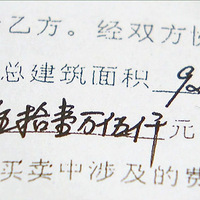 乙方。经双方协
总建筑面积 9
拾壹万伍仟元
买卖中涉及的费